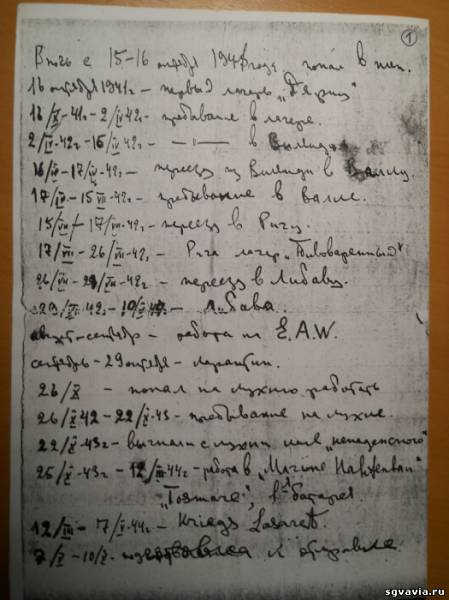 1
В ночь с 15-16 октября 1941 года, попал в плен.
16 октября 1941г – первый лагерь
16/X-41г – 2/IV-42г – пребывание в лагере.
2/IV-42г – 16/IV 42г – —"— в Вилянди
16/IV - 17/IV-42г – переезд из Вилянди в Валлу.
17/IV – 15 VII-42г – пребывание в Валле.
15/VII – 17/VII-42г – переезд в Ригу.
17/VII – 26/VII-42г. – Рига лагерь „Пивоваренный"
26/VII – 29/VII-42г – переезд в Либаву.
– Либава.
август-сентябрь – работа на E.A.W.
сентябрь - 29 октября – карантин.
26/X – попал на кухню работать
26/X 42 – 22/X-43 – пребывание на кухне.
22/X-43г – выгнали с кухни как „ненадежного"
25/X-43г – 12/III 44г – работа в „Marine
„Tosmare", в батареи
12/III – 7/X-44г – Kriegs Lasaret.
7/X – 10/X- к отправке.
sgvavia.ru